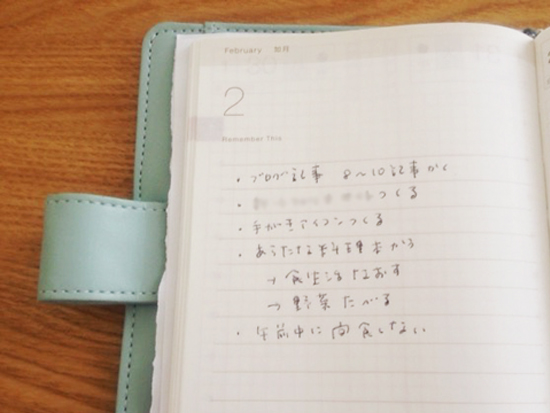 February 如月
2
Remember This
・ブログ記事 8〜10記事かく
・つくる
・手がきアイコンつくる
・あらたな料理本かう
→食生活なおす
→野菜たべる
・午前中に間食しない